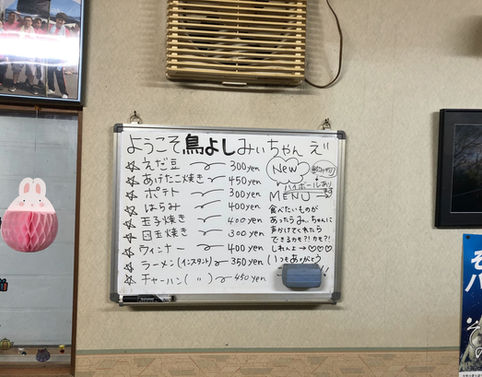 ようこそ鳥よしみぃちゃんえ
えだ豆 300yen
あげたこ焼き 450yen
ポテト 300yen
はらみ 400yen
玉子焼き 400yen
目玉焼き 300yen
ウィンナー 400yen
ラーメン(インスタント) 350yen
チャーハン( 〃 ) 450yen
New
ハイボールあり
MENU
食べたいものが
あったらみぃちゃんに
声かけてくれたら
できるかも?!かも?!
しれんよ→♡♡♡
(いつもありがとう